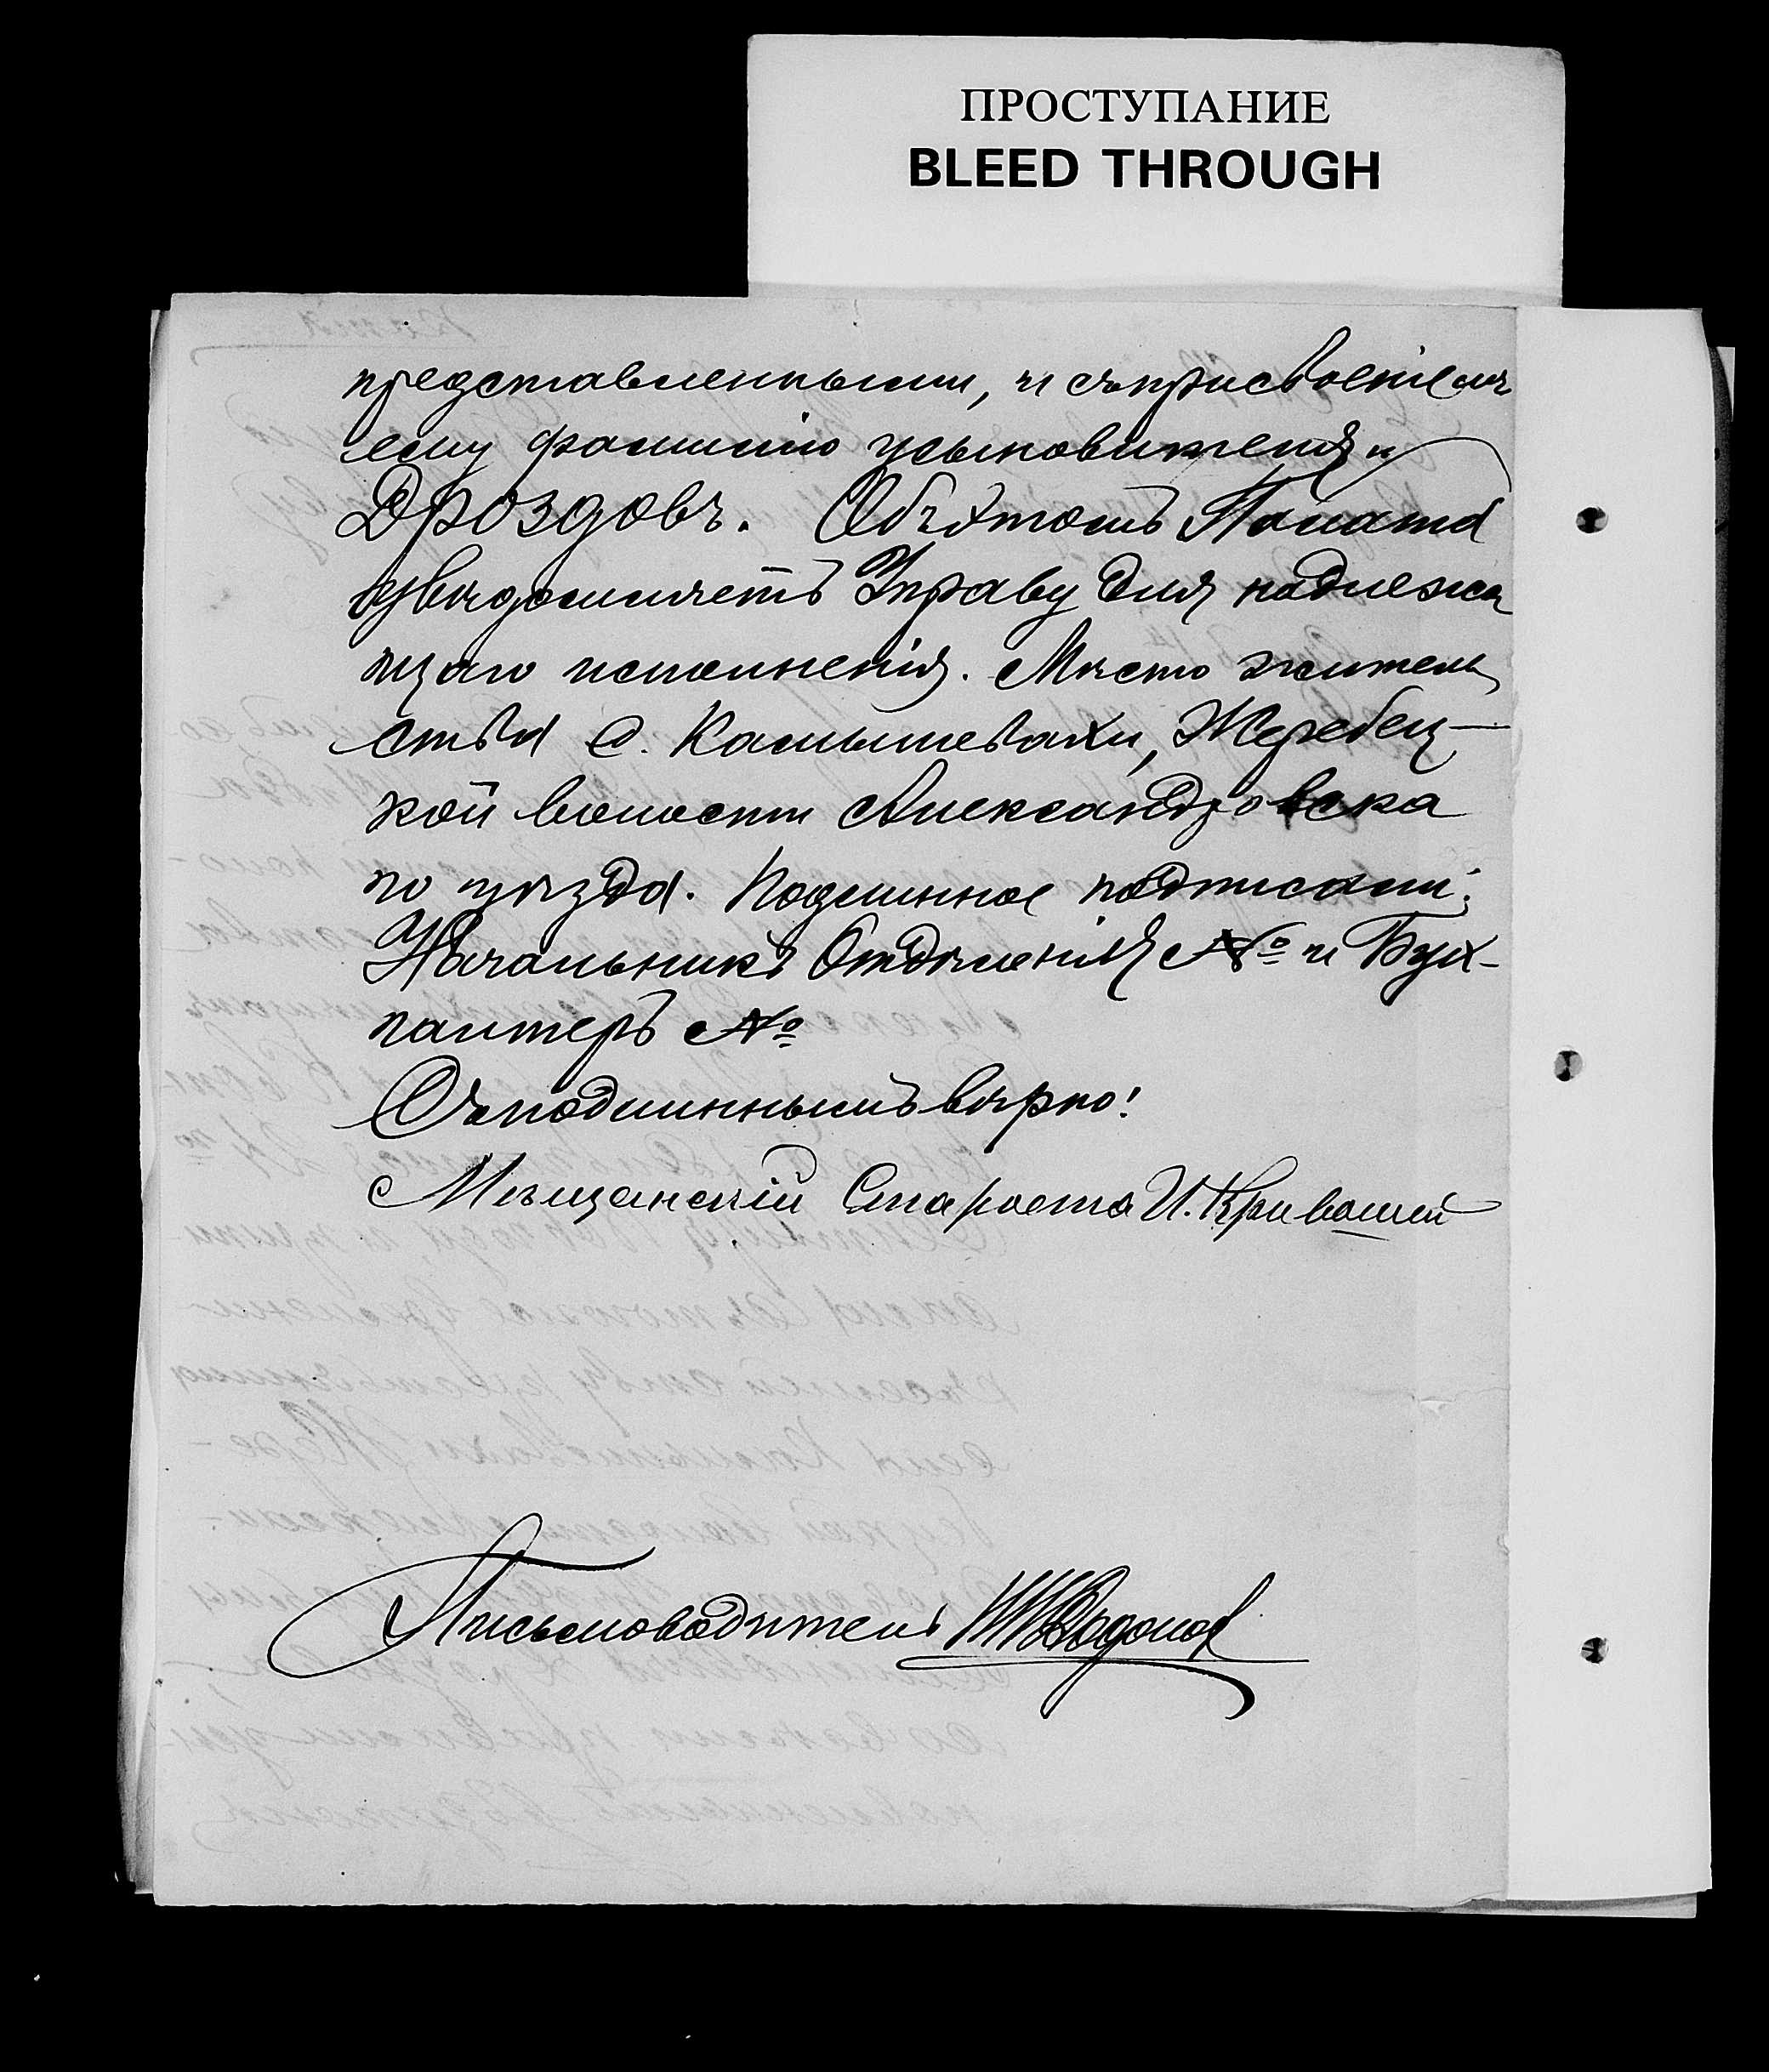 ПРОСТУПАНИЕ
BLEED THROUGH
представленными, и съ присвоеніемъ
ему фамиліи усыновителя „
Дроздовъ. Объ этомъ Палата
увѣдомляетъ Управу для надлежа
щаго исполненія. Мѣсто житель
ства с. Камышеваха, Жеребец-
кой волости Александровска
го уѣзда. Подлинное подписали:
Начальникъ Отдѣленія № и Бух-
галтеръ №
Съ подлиннымъ вѣрно!
Мѣщанскій Староста И. Кривошей
Письмоводитель